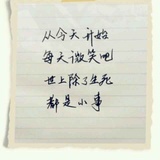 从今天开始
每天微笑吧
世上除了生死
都是小事